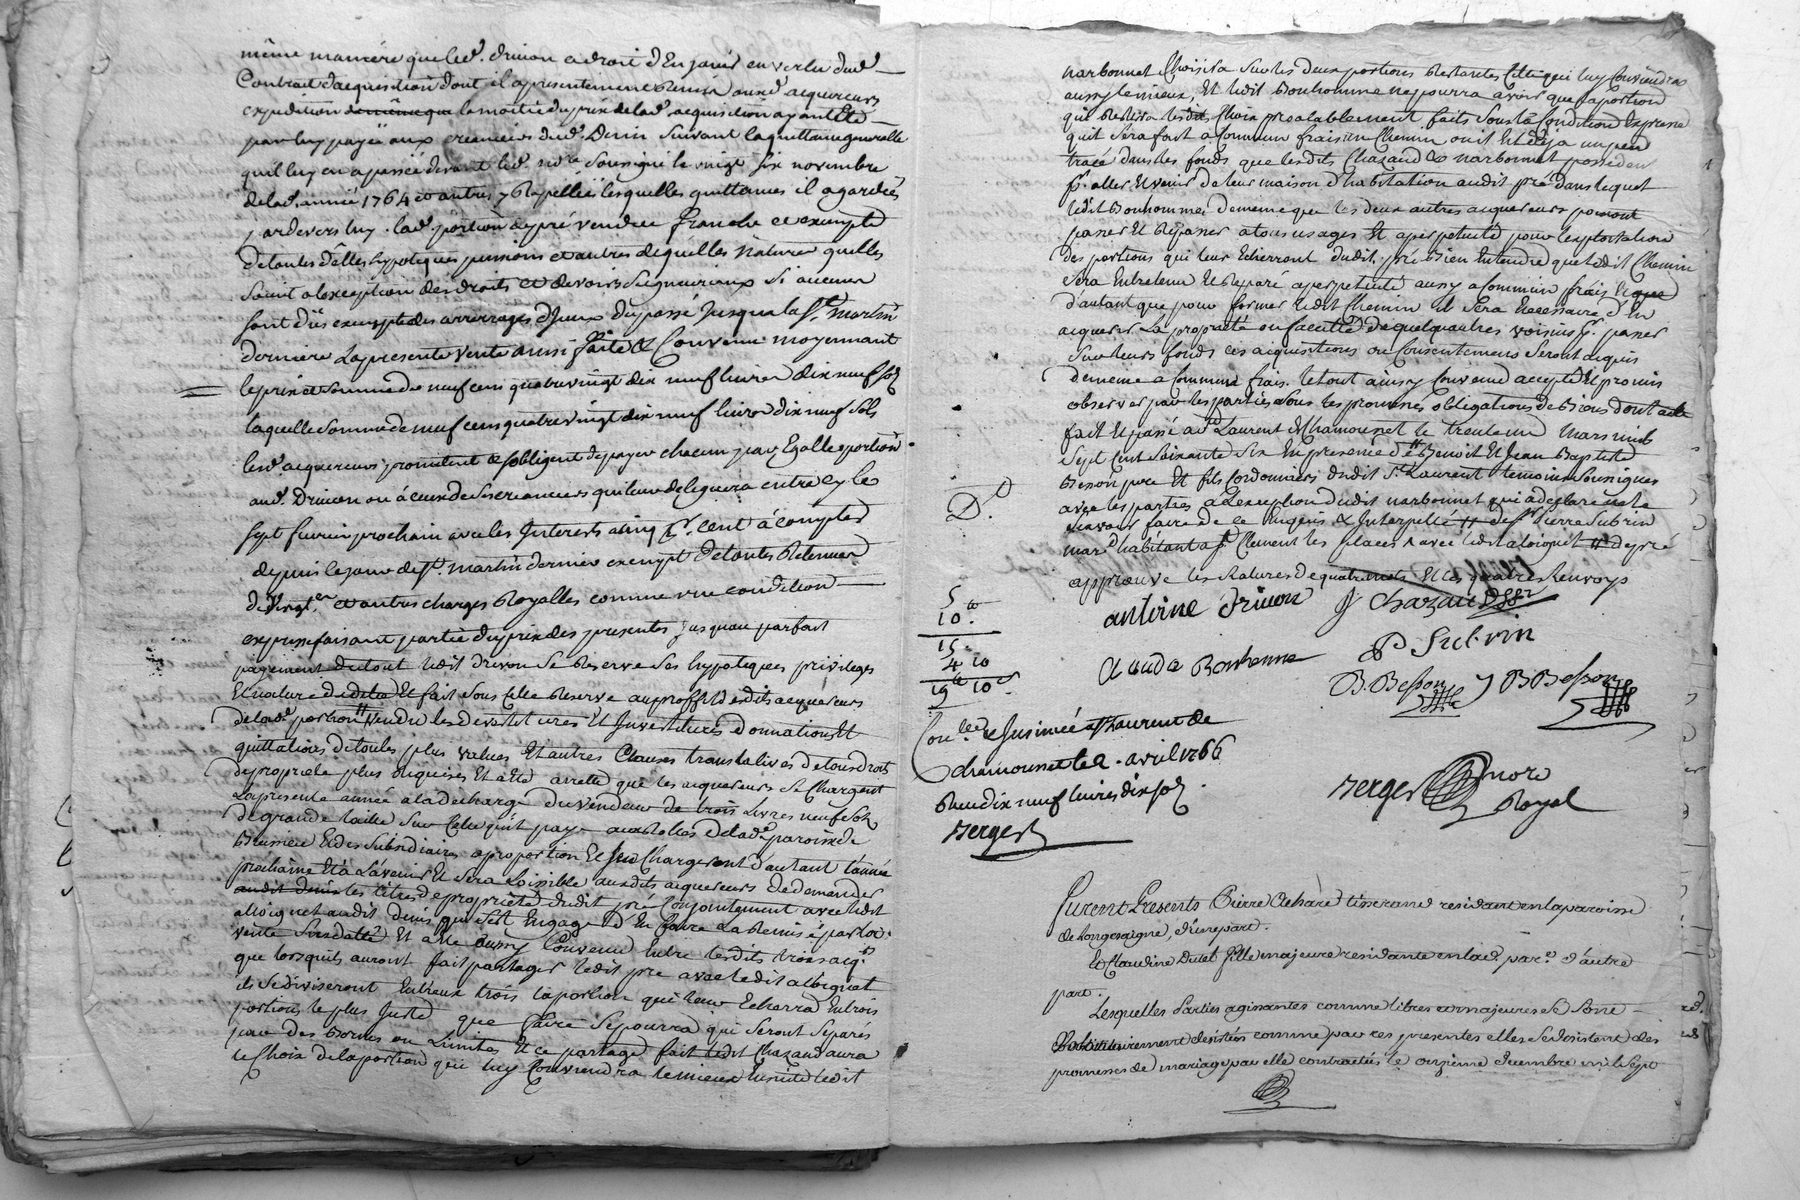 même maniére que led. Drivon a droit d'En jouir en vertu dud.
Contract d'acquisition dont il a presentement Remis auxd. acquereurs
expedition la moitié du prix de lad. acquisition ayant Eté
par luy payée aux creanciers dud. Denis Suivant la quittance generalle
qu'il luy en a passée devant led. nore. Soussigné le vingt six novembre
de lad. année 1764 et autres y Rapellées lesquelles quittances il a gardées
pardevers luy. lad. portion de pré vendue franche et exempte
de toutes dêttes hypoteques pensions et autres de quelles nature quelles
soint a l'exception des droits et devoirs Seigneuriaux Si aucuns
sont dûs exempte des arrerages d'Iceux du passé Jusqu'a la St. Martin
derniere La presente vente ainsi faite et Convenue moyennant
le prix et Somme de neuf cens quatre vingt dix neuf livres dix neuf sols
laquelle Somme de neuf cens quatre vingt dix neuf livres dix neuf sols
lesd. acquereurs promettent et s'obligent de payer chacun par Egalle portion
aud. Drivon ou à ceux de Ses creanciers qu'il leur deleguera entre cy le
sept fevrier prochain avec les Interests a cinq pr. cent à compter
depuis le jour de St. martin dernier exempt de toutes Retenues
de Vingt. et autres charges Royalles comme une condition
expresse faisant partie du prix des presentes jusqu'au parfait
payement ledit Drivon Se Reserve Ses hypoteques privileges
Et nature Et fait Sous Cette Reserve au proffit desdits acquereurs
de lad. portion vendu les devestitures Et Investitures donnations Et
quittations de toutes plus values Et autres Clauses translatives de tous droits
de propriété plus Requises Et a Eté arretté que les acquereurs Se Chargent
La presente année a la decharge du vendeur de trois Livres neuf Sols
de grande taille Sur Celle qu'il paye aux Rolles de lad. paroisse de
Brussieu Et des Subsidiaires a proportion Et Sen Chargeront d'autant l'année
prochaine Et a L'avenir Et Sera Loissible auxdits acquereurs de demander
les titres de propriété dudit pré Conjointement avec ledit
alloignet audit denis qui S'est Engagé d'En faire La Remise par La
vente Susdatté Et a Eté aussy Convenu Entre lesdits trois acq.rs
que lorsquils auront fait partager ledit pré avec ledit aloignet
ils Se diviseront Entreux trois la portion qui leur Echerra En trois
portions le plus Juste que faire Se pourra qui Seront Separés
par des bornes ou Limites Et ce partage fait ledit Chazaud aura
le Choix de la portion qui luy Conviendra le mieux Ensuite ledit
narbonnet Choisira Sur les deux portions Restantes Celle qui luy Conviendra
aussy le mieux, Et ledit Bonhomme ne pourra avoir que la portion
qui Restera lesdits Choix prealablement faits Sous la Condition Expresse
quil Sera fait a Commun frais un Chemin ou il Est deja un peu
tracé dans les fonds que lesdits Chazaud & narbonnet possedent
pr. aller Et venir de leur maison d'habitation audit pré dans lequel
ledit Bonhomme de meme que les deux autres acquereurs pourront
passer Et Repasser a tous usages Et a perpetuité pour l'exploitation
des portions qui leur Echerront dudit pré Bien Entendu que ledit Chemin
Sera Entretenu Et Reparé a perpetuité aussy a Commun frais Et
d'autant que pour former ledit Chemin il Sera Necessaire d'En
acquerir La propriété ou faculté de quelquautres voisins pr. passer
Sur leurs fonds ces acquisitions ou Consentements Seront acquis
de meme a Commun frais. le tout ainsy Convenu accepté Et promis
observer par les parties Sous les promesses obligations de Biens dont acte
fait Et passé a St. Laurent de Chamousset le trente un Mars mil
Sept Cent Soixante Six En presence de Benoit Et Jean Baptiste
Besson pere Et fils Cordonniers dudit St. Laurent temoins Soussignés
avec les parties a L'exception dudit narbonnet qui a declaré ne le
sçavoir faire de ce Enquis & Interpellé de Sr. Pierre Subrin
mard. habitant a St. Clement les places avec ledit aloignet
approuvé les Ratures de quatre mots Et les quatre Renvoys
antoine drivon J Chazaud
P Subrin
Claude Bonhomme
B. Besson J B Besson
D.
5
10.
15
4 10
19 10
Con.lé & Insinué a St Laurent de
chamousset le 2. avril 1766
Reçu dix neuf livres dix sols
Berger
Berger nore
Royal
Furent Presents Pierre tisserand residant en la paroisse
de Longessaigne, d'une part.
Et Claudine Dutel fille majeure residante en lad. par.e d'autre
part.
Lesquelles Parties agissantes comme libres et majeures Se Sont
desistées comme par ces presentes elles Se desistent des
promesses de mariage par elle contractées le onzieme decembre mil Sept